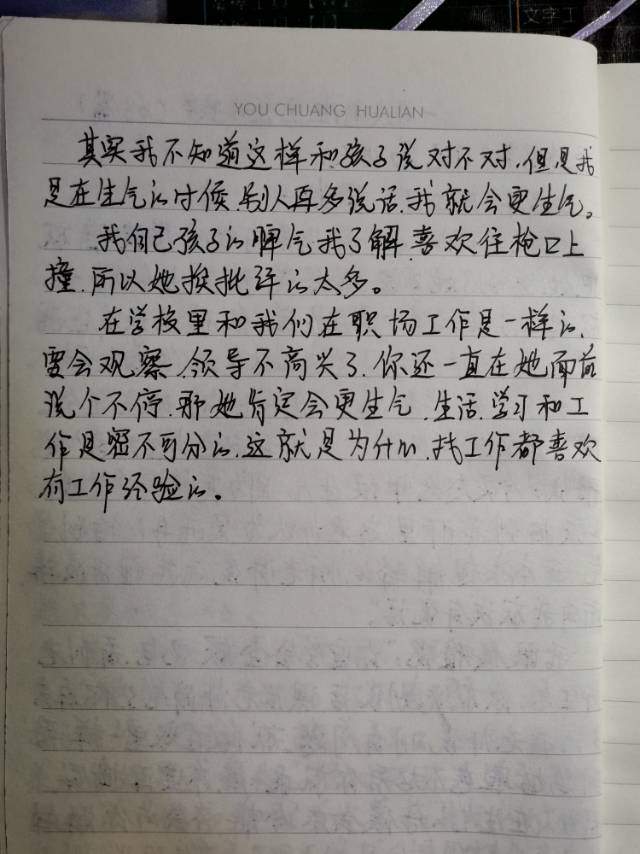 文字工
YOU CHUANG HUALIAN
其实我不知道这样和孩子说对不对，但是我
是在生气的时候，别人再多说话，我就会更生气。
我自己孩子的脾气我了解，喜欢往枪口上
撞，所以她挨批评的太多。
在学校里和我们在职场工作是一样的，
要会观察，领导不高兴了，你还一直在她面前
说个不停，那她肯定会更生气，生活，学习和工
作是密不可分的，这就是为什么，找工作都喜欢
有工作经验的。